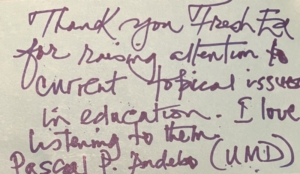 Thank you FreshEd
for raising attention to
current topical issues
in education. I love
listening to them.
Pascal P. (UMD)